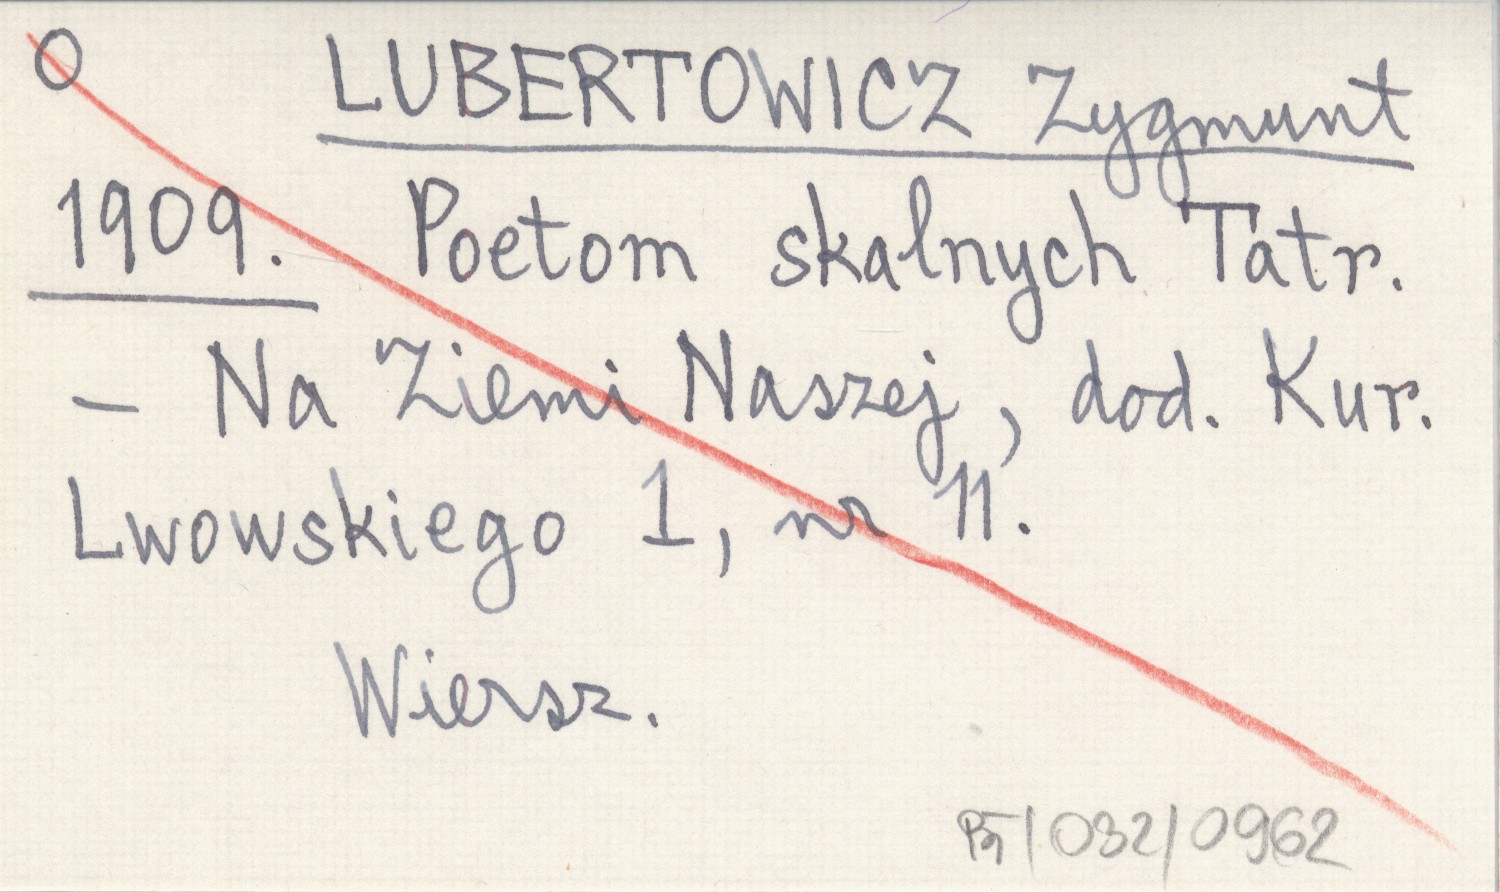 O LUBERTOWICZ Zygmunt
1909. Poetom skalnych Tatr.
– Na Ziemi Naszej, dod. Kur.
Lwowskiego 1, nr 11.
Wiersz.
BT/032/0962